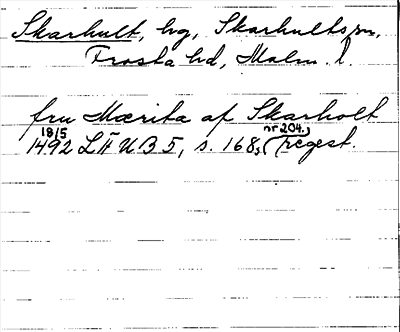 Skarhult, hg, Skarhults sn,
Frosta hd, Malm. l.
fru Mærita af Skarholt
18/5 1492 LÄUB 5, s. 168, (nr 204.) regest.